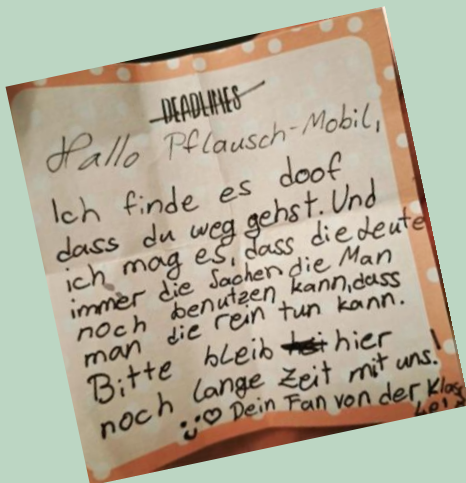 DEADLINES
Hallo Pflausch-Mobil,
Ich finde es doof
dass du weg gehst. Und
ich mag es, dass die Leute
immer die Sachen die Man
noch benutzen kann, dass
man die rein tun kann.
Bitte bleib hier
noch lange Zeit mit uns!
Dein Fan von der Klas